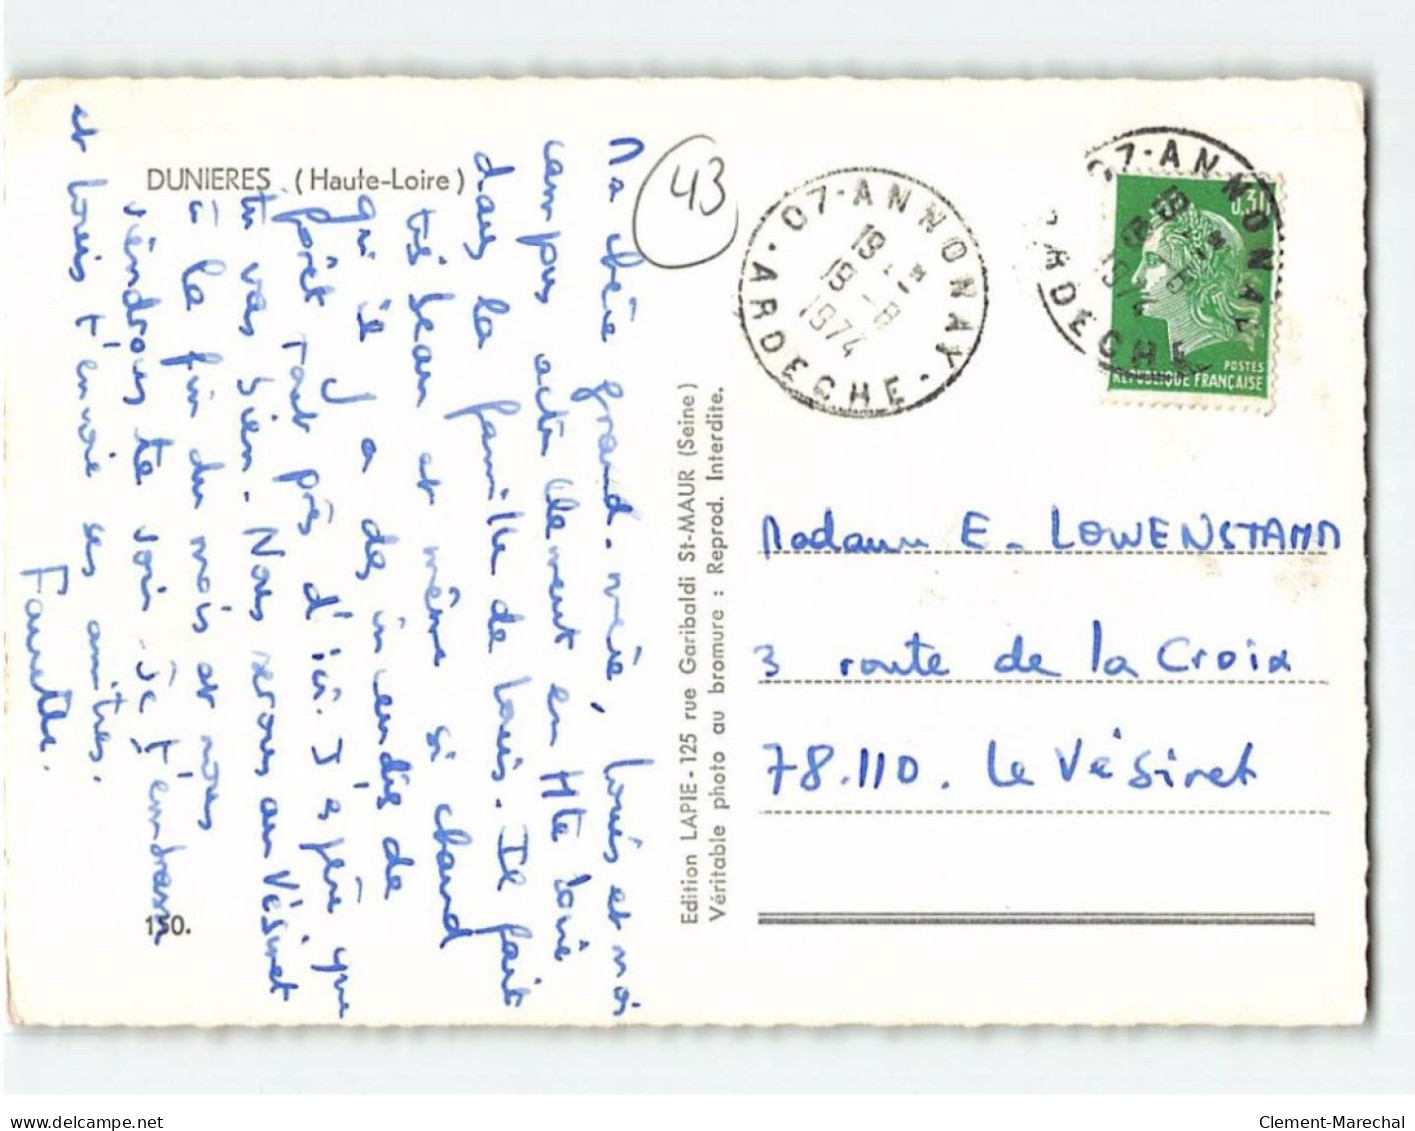 DUNIERES (Haute-Loire)
43
Ma chère grand-mère, Louis et moi
campons actuellement en Hte Loire
dans la famille de Louis. Il fait
très beau et même si chaud
qu'il y a des incendies de
forêt tout près d'ici. J'espère que
tu vas bien. Nous serons au Vésinet
à la fin du mois et nous
viendrons te voir. Je t'embrasse
et Louis t'envoie ses amitiés.
130.
Edition LAPIE - 125 rue Garibaldi St-MAUR (Seine)
Véritable photo au bromure : Reprod. Interdite.
07-ANNONAY
19 H
19 -8
1974
ARDECHE
07-ANNONAY
ARDECHE
0,30
POSTES
REPUBLIQUE FRANÇAISE
Madame E- LOWENSTAMM
3 route de la Croix
78.110. Le Vésinet
delcampe.net
Clement-Marechal